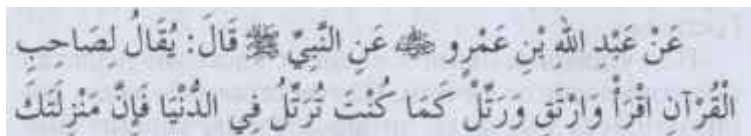 عَنْ عَبْدِ اللهِ بْنِ عَمْرٍو ﷺ عَنِ النَّبِيِّ ﷺ قَالَ: يُقَالُ لِصَاحِبِ
الْقُرْآنِ اقْرَأْ وَارْتَقِ وَرَتِّلْ كَمَا كُنْتَ تُرَتِّلُ فِي الدُّنْيَا فَإِنَّ مَنْزِلَتَكَ